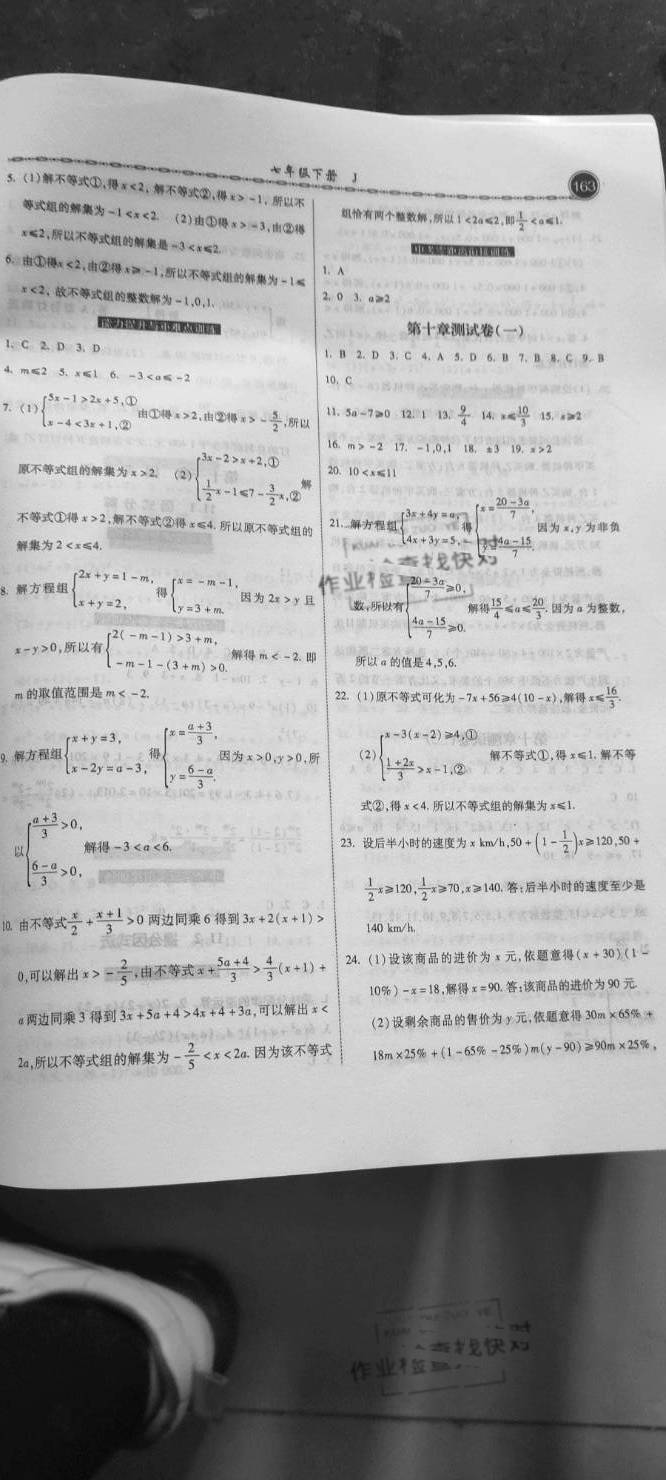 七年级下册 J
163
5. (1)解不等式①,得 x<2, 解不等式②,得 x>-1, 所以不
等式组的解集为 -1<x<2. (2)由①得 x>-3,由②得
x≤2,所以不等式组的解集是 -3<x≤2.
6. 由①得 x<2,由②得 x≥-1,所以不等式组的解集为 -1≤
x<2, 故不等式组的整数解为 -1,0,1.
能力提升与重难点训练
1. C 2. D 3. D
4. m≤2 5. x≤1 6. -3<a≤-2
7. (1){5x-1>2x+5,① x-4<3x+1,② 由①得 x>2,由②得 x>-5/2,所以
原不等式组的解集为 x>2. (2){3x-2>x+2,① 1/2x-1≤7-3/2x,② 解
不等式①得 x>2,解不等式②得 x≤4. 所以原不等式组的
解集为 2<x≤4.
8. 解方程组{2x+y=1-m, x+y=2, 得{x=-m-1, y=3+m. 因为 2x>y 且
x-y>0,所以有{2(-m-1)>3+m, -m-1-(3+m)>0. 解得 m<-2. 即
m 的取值范围是 m<-2.
9. 解方程组{x+y=3, x-2y=a-3, 得{x=(a+3)/3, y=(6-a)/3. 因为 x>0,y>0,所
以{(a+3)/3>0, (6-a)/3>0, 解得 -3<a<6.
10. 由不等式 x/2+(x+1)/3>0 两边同乘 6 得到 3x+2(x+1)>
0,可以解出 x>-2/5,由不等式 x+(5a+4)/3>4/3(x+1)+
a 两边同乘 3 得到 3x+5a+4>4x+4+3a,可以解出 x<
2a,所以不等式组的解集为 -2/5<x<2a. 因为该不等式
组恰有两个整数解,所以 1<2a≤2,即1/2<a≤1.
1. A
2. 0 3. a≥2
第十章测试卷(一)
1. B 2. D 3. C 4. A 5. D 6. B 7. B 8. C 9. B
10. C
11. 5a-7≥0 12. 1 13. 9/4 14. x≤10/3 15. x≥2
16. m>-2 17. -1,0,1 18. ±3 19. x>2
20. 10<x≤11
21. 解方程组{3x+4y=a, 4x+3y=5, 得{x=(20-3a)/7, y=(4a-15)/7. 因为 x,y 为非负
数,所以有{(20-3a)/7≥0, (4a-15)/7≥0. 解得15/4≤a≤20/3. 因为 a 为整数,
所以 a 的值是 4,5,6.
22. (1)原不等式可化为 -7x+56≥4(10-x),解得 x≤16/3.
(2){x-3(x-2)≥4,① (1+2x)/3>x-1,② 解不等式①,得 x≤1. 解不等
式②,得 x<4. 所以不等式组的解集为 x≤1.
23. 设后半小时的速度为 x km/h,50+(1-1/2)x≥120,50+
1/2x≥120,1/2x≥70,x≥140. 答:后半小时的速度至少是
140 km/h.
24. (1)设该商品的进价为 x 元,依题意得(x+30)(1-
10%)-x=18,解得 x=90. 答:该商品的进价为 90 元.
(2)设剩余商品的售价为 y 元,依题意得 30m×65%+
18m×25%+(1-65%-25%)m(y-90)≥90m×25%,
查找快对
作业检
查找快对
作业检